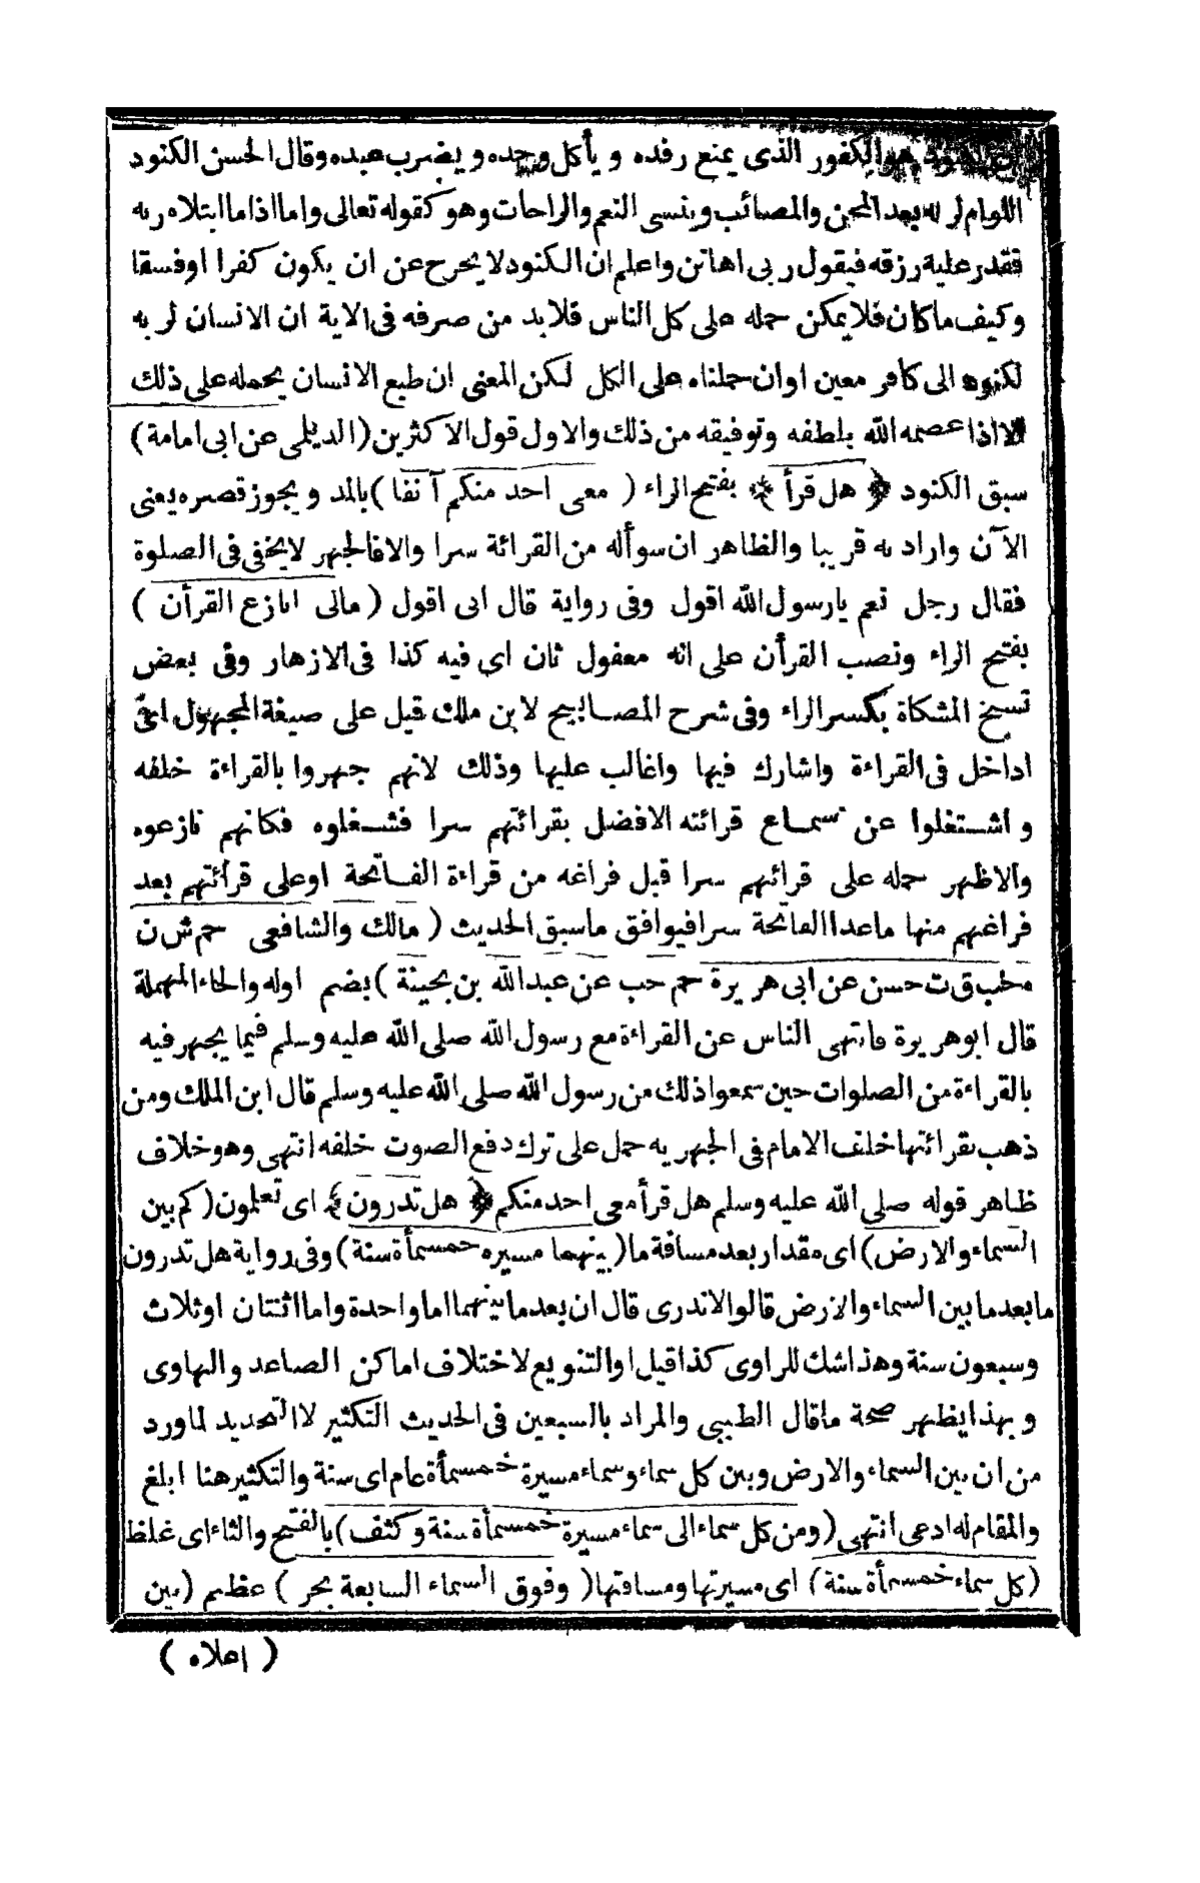 الكنود هو الكفور الذى يمنع رفده و يأكل وحده و يضرب عبده وقال الحسن الكنود
اللوام لربه يعد المحن والمصائب وينسى النعم والراحات وهو كقوله تعالى واما اذا ما ابتلاه ربه
فقدر عليه رزقه فيقول ربى اهانن واعلم ان الكنود لا يخرج عن ان يكون كفرا اوفسقا
وكيف ماكان فلا يمكن حمله على كل الناس فلابد من صرفه فى الاية ان الانسان لربه
لكنود الى كافر معين اوان حملناه على الكل لكن المعنى ان طبع الانسان يحمله على ذلك
الا اذا عصمه الله بلطفه وتوفيقه من ذلك والاول قول الاكثرين (الديلمى عن ابى امامة)
سبق الكنود ﴿ هل قرأ ﴾ بفتح الراء ( معى احد منكم آنفا ) بالمد و يجوز قصره يعنى
الآن واراد به قريبا والظاهر ان سوأله من القرائة سرا والا فالجهر لا يخفى فى الصلوة
فقال رجل نعم يارسول الله اقول وفى رواية قال ابى اقول ( مالى انازع القرأن )
بفتح الراء ونصب القرأن على انه مفعول ثان اى فيه كذا فى الازهار وفى بعض
نسخ المشكاة بكسر الراء وفى شرح المصابيح لابن ملك قيل على صيغة المجهول اى
اداخل فى القراءة واشارك فيها واغالب عليها وذلك لانهم جهروا بالقراءة خلفه
و اشتغلوا عن سماع قرائته الافضل بقرائتهم سرا فشغلوه فكانهم نازعوه
والاظهر حمله على قرائهم سرا قبل فراغه من قراءة الفاتحة اوعلى قرائتهم بعد
فراغهم منها ماعدا الفاتحة سرا فيوافق ماسبق الحديث ( مالك والشافعى حم ش ن
م حب ق ت حسن عن ابى هريرة حم حب عن عبدالله بن بحينة ) بضم اوله والحاء المهملة
قال ابو هريرة فانتهى الناس عن القراءة مع رسول الله صلى الله عليه وسلم فيما يجهر فيه
بالقراءة من الصلوات حين سمعوا ذلك من رسول الله صلى الله عليه وسلم قال ابن الملك ومن
ذهب بقرائتها خلف الامام فى الجهريه حمل على ترك دفع الصوت خلفه انتهى وهو خلاف
ظاهر قوله صلى الله عليه وسلم هل قرأ معى احد منكم ﴿ هل تدرون ﴾ اى تعلمون ( كم بين
السماء والارض ) اى مقدار بعد مسافة ما ( بينهما مسيره خمسمأة سنة ) وفى رواية هل تدرون
ما بعد ما بين السماء والارض قالوا لاندرى قال ان بعد ما بينهما اما واحدة واما اثنتان اوثلاث
وسبعون سنة وهذا شك للراوى كذا قيل او التنويع لاختلاف اماكن الصاعد والهاوى
وبهذا يظهر صحة ماقال الطيبى والمراد بالسبعين فى الحديث التكثير لا التحديد لما ورد
من ان بين السماء والارض وبين كل سماء وسماء مسيرة خمسمأة عام اى سنة والتكثير هنا ابلغ
والمقام له ادعى انتهى ( ومن كل سماء الى سماء مسيرة خمسمأة سنة وكثف ) بالفتح والثاء اى غلظ
( كل سماء خمسمأة سنة ) اى مسيرتها ومسافتها ( وفوق السماء السابعة بحر ) عظيم ( بين
( اعلاه )